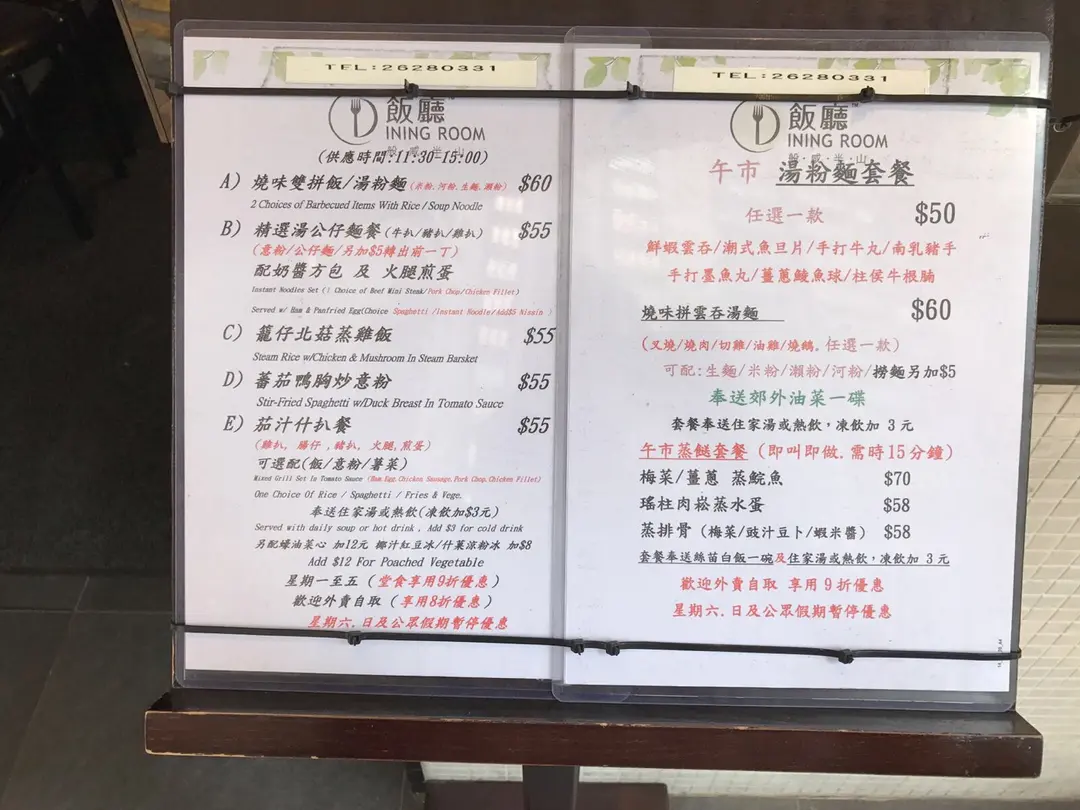 TEL:26280331
飯廳™
INING ROOM
(供應時間:11:30-15:00)
A) 燒味雙拼飯/湯粉麵(米粉.河粉.生麵.瀨粉) $60
2 Choices of Barbecued Items With Rice / Soup Noodle
B) 精選湯公仔麵餐(牛扒/豬扒/雞扒) $55
(意粉/公仔麵/另加$5轉出前一丁)
配奶醬方包 及 火腿煎蛋
Instant Noodles Set (1 Choice of Beef Mini Steak/Pork Chop/Chicken Fillet)
Served w/ Ham & Panfried Egg(Choice Spaghetti /Instant Noodle/Add$5 Nissin )
C) 籠仔北菇蒸雞飯 $55
Steam Rice w/Chicken & Mushroom In Steam Barsket
D) 蕃茄鴨胸炒意粉 $55
Stir-Fried Spaghetti w/Duck Breast In Tomato Sauce
E) 茄汁什扒餐 $55
(雞扒, 腸仔 ,豬扒, 火腿,煎蛋)
可選配(飯/意粉/薯菜)
Mixed Grill Set In Tomato Sauce (Ham,Egg,Chicken Sausage,Pork Chop,Chicken Fillet)
One Choice Of Rice / Spaghetti / Fries & Vege.
奉送住家湯或熱飲(凍飲加$3元)
Served with daily soup or hot drink, Add $3 for cold drink
另配蠔油菜心 加12元 椰汁紅豆冰/什菓涼粉冰 加$8
Add $12 For Poached Vegetable
星期一至五 ( 堂食享用9折優惠 )
歡迎外賣自取 ( 享用8折優惠 )
星期六. 日及公眾假期暫停優惠
TEL:26280331
飯廳™
INING ROOM
午市 湯粉麵套餐
任選一款 $50
鮮蝦雲吞/潮式魚旦片/手打牛丸/南乳豬手
手打墨魚丸/薑蔥鯪魚球/柱侯牛根腩
燒味拼雲吞湯麵 $60
(叉燒/燒肉/切雞/油雞/燒鵝. 任選一款)
可配:生麵/米粉/瀨粉/河粉/撈麵另加$5
奉送郊外油菜一碟
套餐奉送住家湯或熱飲，凍飲加 3 元
午市蒸餸套餐 (即叫即做. 需時15分鐘)
梅菜/薑蔥 蒸鯇魚 $70
瑤柱肉崧蒸水蛋 $58
蒸排骨 (梅菜/豉汁豆卜/蝦米醬) $58
套餐奉送絲苗白飯一碗及住家湯或熱飲，凍飲加 3 元
歡迎外賣自取 享用 9 折優惠
星期六. 日及公眾假期暫停優惠